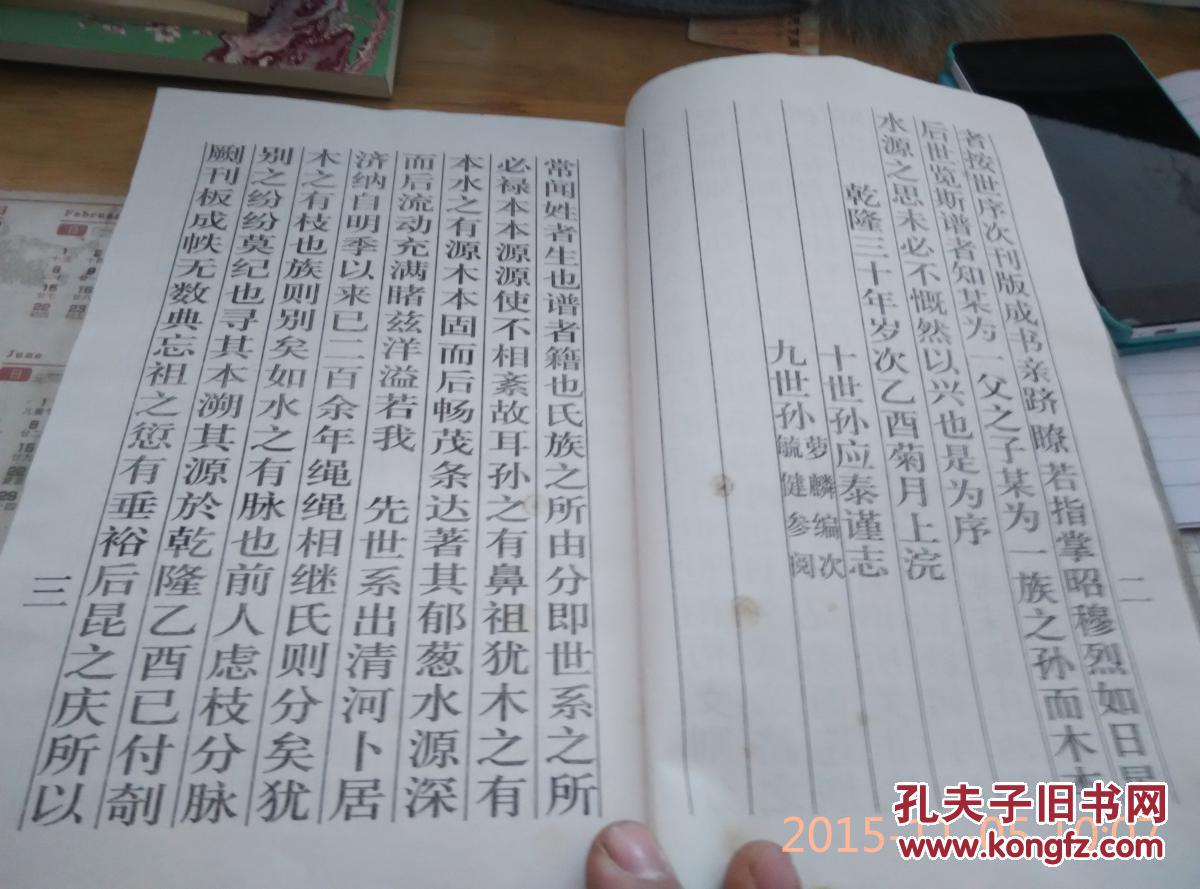 二
者按世序次刊版成书亲跻瞭若指掌昭穆烈如日星
后世览斯谱者知某为一父之子某为一族之孙而木本
水源之思未必不慨然以兴也是为序
乾隆三十年岁次乙酉菊月上浣
十世孙应泰谨志
九世孙
梦麟编次
毓健参阅
常闻姓者生也谱者籍也氏族之所由分即世系之所
必禄本本源源使不相紊故耳孙之有鼻祖犹木之有
本水之有源木本固而后畅茂条达著其郁葱水源深
而后流动充满睹兹洋溢若我 先世系出清河卜居
济纳自明季以来已二百余年绳绳相继氏则分矣犹
木之有枝也族则别矣如水之有脉也前人虑枝分脉
别之纷纷莫纪也寻其本溯其源於乾隆乙酉已付剞
劂刊板成帙无数典忘祖之愆有垂裕后昆之庆所以
三
Februar
June
孔夫子旧书网
www.kongfz.com
2015-11-05 10:07